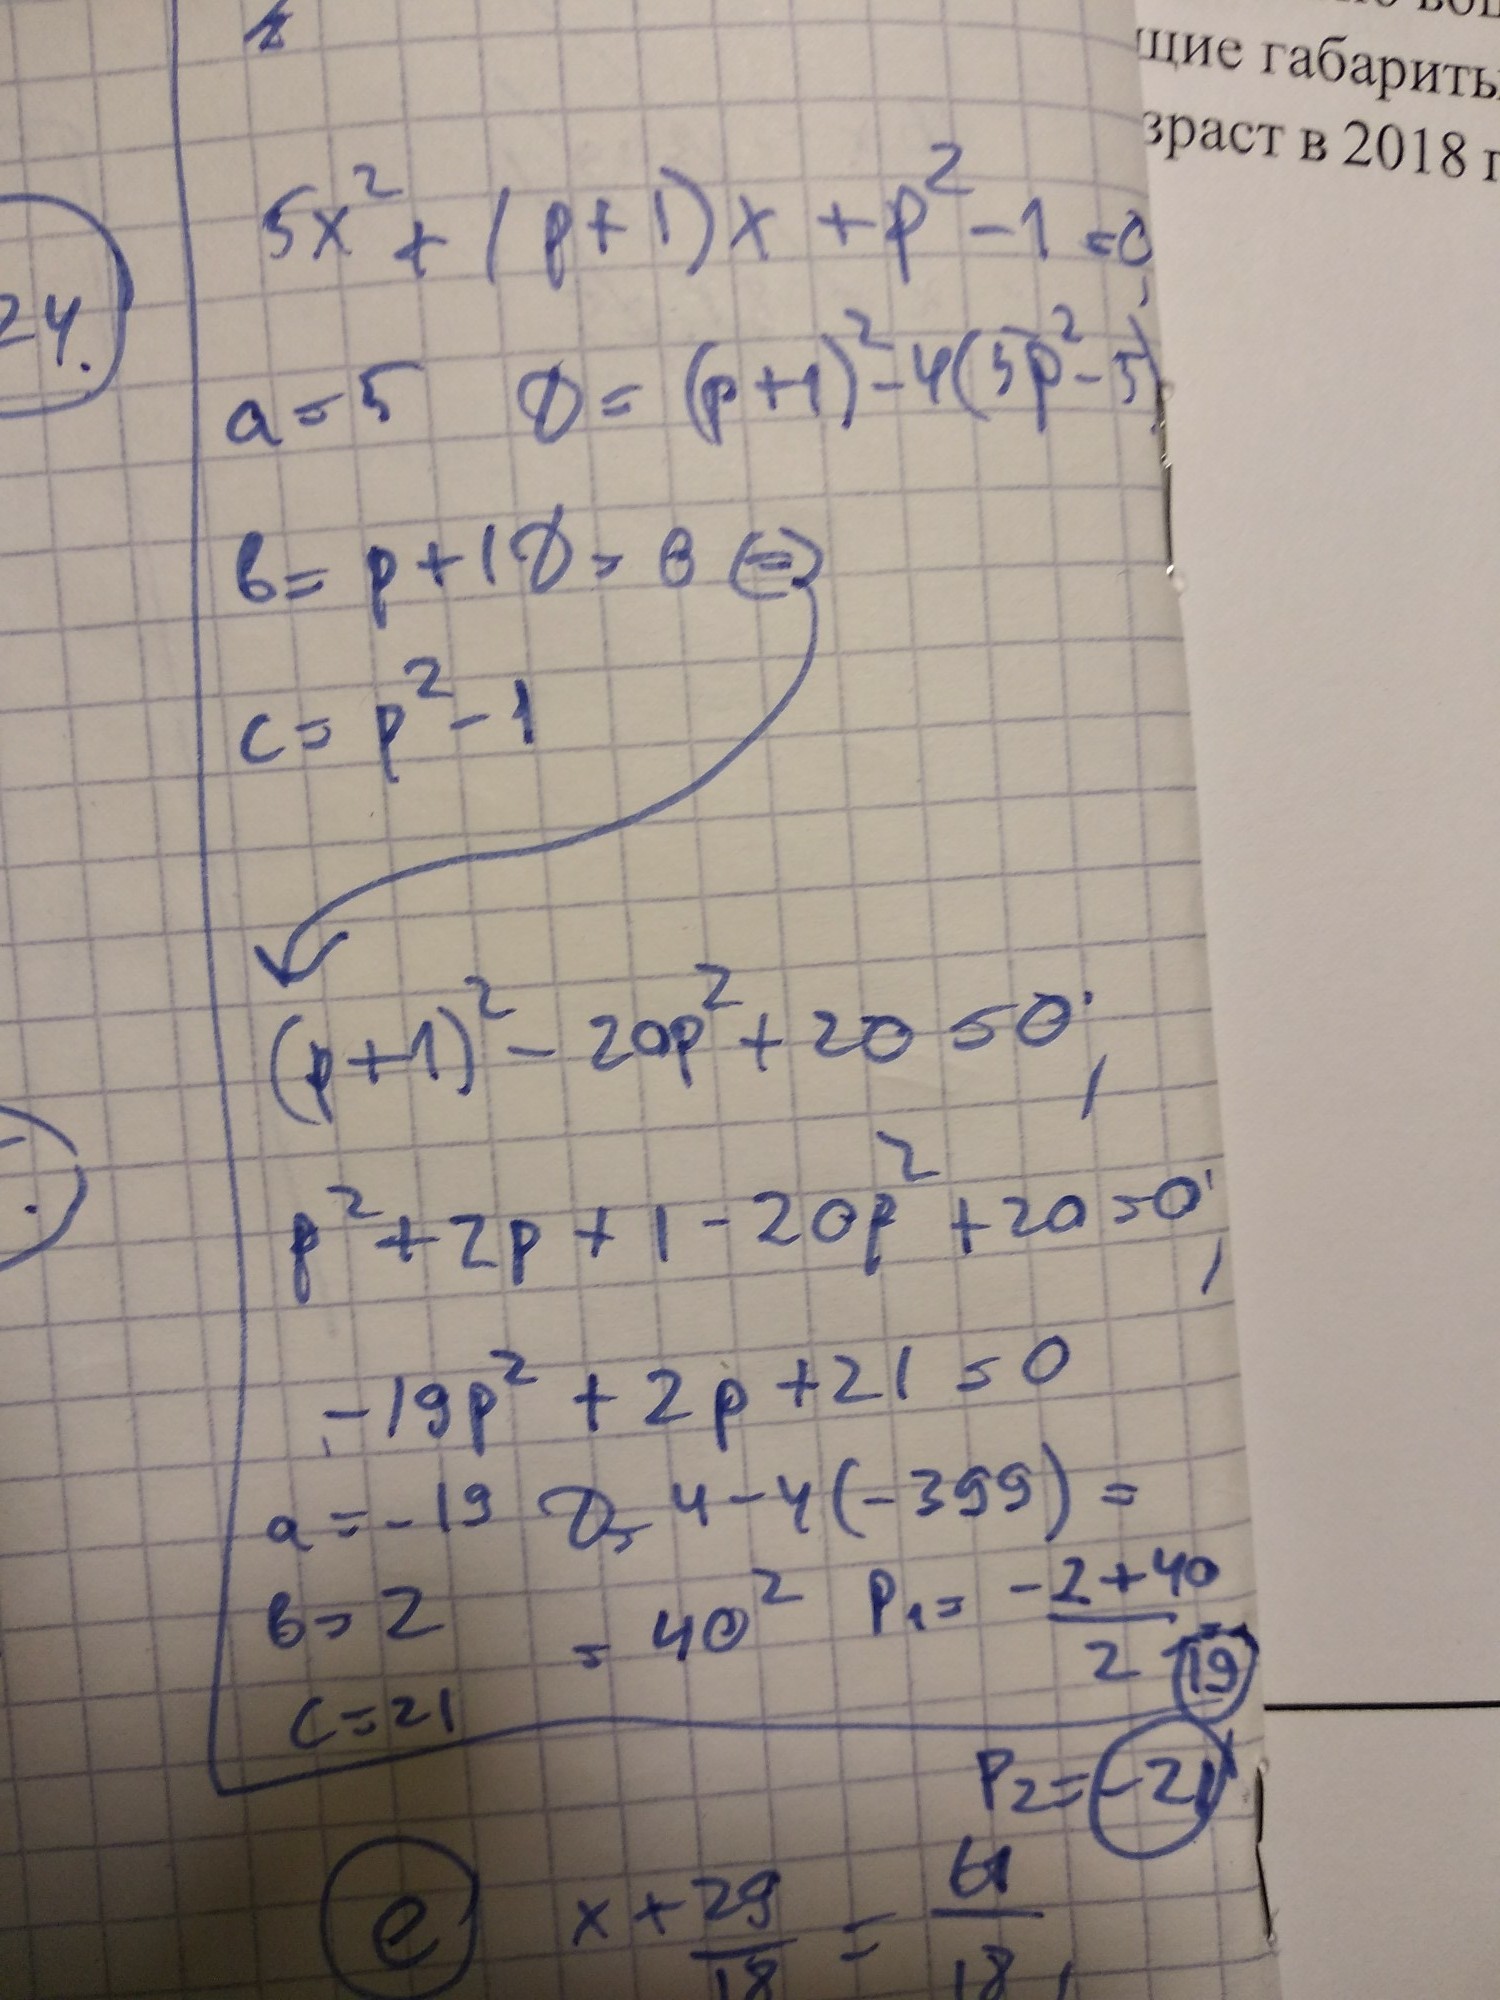 щие габариты
зраст в 2018 г
5x² + (p+1)x + p² - 1 = 0;
24.
a = 5 D = (p+1)² - 4(5p² - 5)
b = p + 1 D = 0 (=)
c = p² - 1
(p+1)² - 20p² + 20 = 0;
p² + 2p + 1 - 20p² + 20 = 0;
-19p² + 2p + 21 = 0
a = -19 D = 4 - 4(-399) =
b = 2 = 40² P₁ = (-2 + 40)/2 = 19
c = 21
P₂ = -21
e x + 29/18 = 61/18;